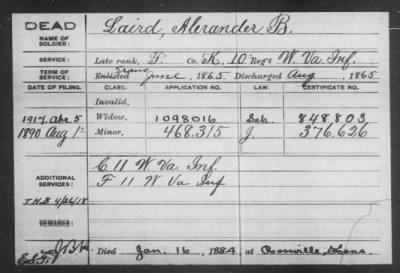 DEAD
NAME OF SOLDIER:
Laird, Alexander B.
SERVICE:
Late rank, P. Co. K, 10 Reg't W. Va. Inf.
TERM OF SERVICE:
Trans
Enlisted June, 1865 Discharged Aug, 1865
DATE OF FILING. CLASS. APPLICATION NO. LAW. CERTIFICATE NO.
Invalid,
1917 Apr. 5 Widow, 1098016 848803
1890 Aug 1 Minor, 468,315 J. 376,626
ADDITIONAL SERVICES:
C 11 W. Va. Inf.
F 11 W Va Inf
REMARKS:
Died Jan. 16, 1884, at